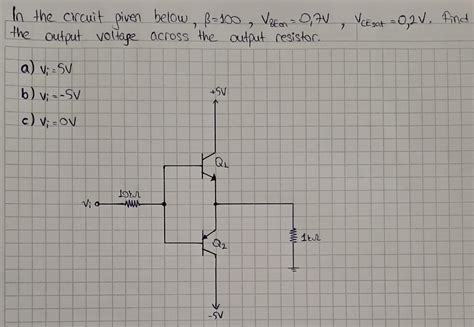 In the circuit given below, β=100, VBEon=0,7V, VCEsat=0,2V. Find
the output voltage across the output resistor.
a) Vi=5V
b) Vi=-5V
c) Vi=0V
+5V
Q1
10kΩ
Vi
Q2
1kΩ
-5V